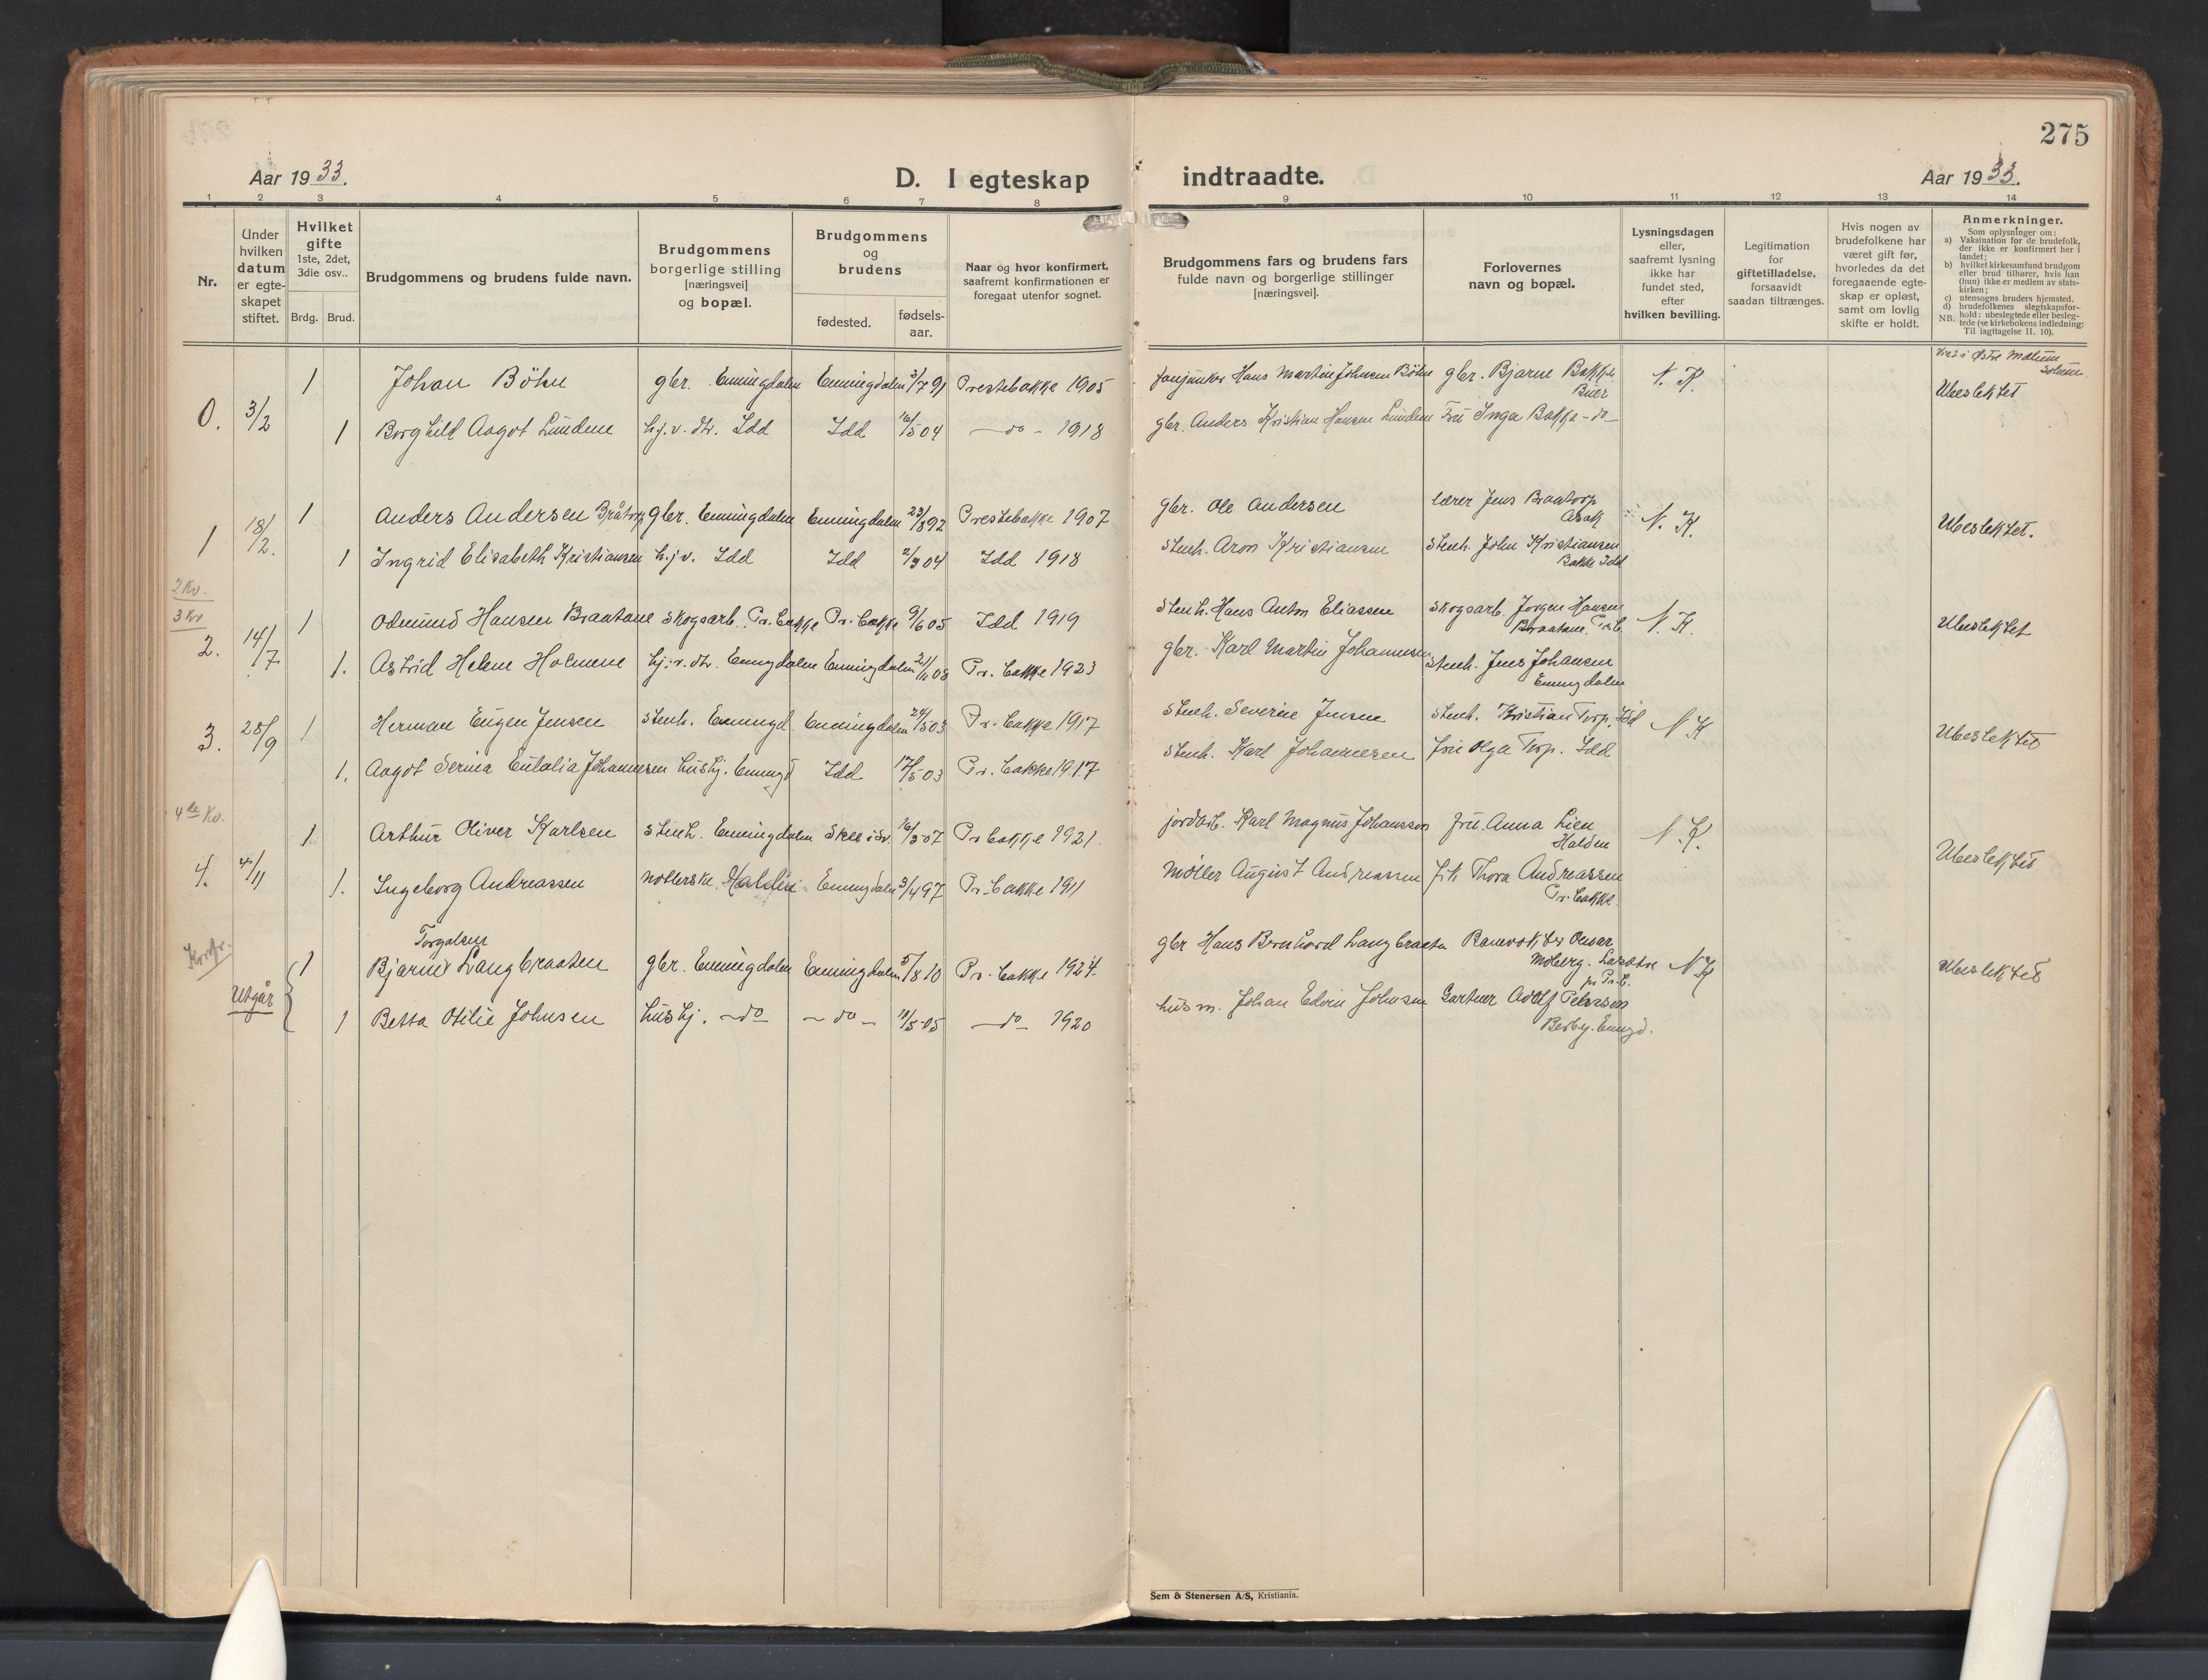 275
Aar 1933.
D. I egteskap indtraadte.
Aar 1933.
1 2 3 4 5 6 7 8 9 10 11 12 13 14
Nr.
Under hvilken datum er egte-skapet stiftet.
Hvilket gifte 1ste, 2det, 3die osv..
Brdg. Brud.
Brudgommens og brudens fulde navn.
Brudgommens borgerlige stilling [næringsvei] og bopæl.
Brudgommens og brudens
fødested. fødsels-aar.
Naar og hvor konfirmert, saafremt konfirmationen er foregaat utenfor sognet.
Brudgommens fars og brudens fars fulde navn og borgerlige stillinger [næringsvei].
Forlovernes navn og bopæl.
Lysningsdagen eller, saafremt lysning ikke har fundet sted, efter hvilken bevilling.
Legitimation for giftetilladelse, forsaavidt saadan tiltrænges.
Hvis nogen av brudefolkene har været gift før, hvorledes da det foregaaende egte-skap er opløst, samt om lovlig skifte er holdt.
Anmerkninger.
Som oplysninger om:
a) Vaksination for de brudefolk, der ikke er konfirmert her i landet;
b) hvilket kirkesamfund brudgom eller brud tilhører, hvis han (hun) ikke er medlem av stats-kirken;
c) utensogns bruders hjemsted.
d) brudefolkenes slegtskapsfor-hold: ubeslegtede eller besleg-tede (se kirkebokens indledning: Til iagttagelse II. 10).
NB.
1 Johan Böhn gbr. Enningdalen Enningdalen 3/7 91 Prestebakke 1905 fanejunker Hans Martin Johnsen Böhn gbr. Bjarne Bakke Buer N. K. Viet i Østre Mølum Solum
0. 3/2 Ubeslektet
1 Borghild Aagot Lundene hj.v. dtr. Idd Idd 16/5 04 -do- 1918 gbr. Anders Kristian Hansen Lundene Fru Inga Bakke -do-
1 Anders Andersen Bråtorp gbr. Enningdalen Enningdalen 23/8 92 Prestebakke 1907 gbr. Ole Andersen lærer Jens Braatorp Asak N. K.
1 18/2. Ubeslektet.
1 Ingrid Elisabeth Kristiansen hj.v. Idd Idd 2/3 04 Idd 1918 Stenh. Aron Kristiansen Stenh. John Kristiansen Bakke Idd
2 Kv.
3 Kv
1 Odmund Hansen Braatane Skogsarb. Pr. bakke Pr. bakke 9/6 05 Idd 1919 Stenh. Hans Anton Eliassen Skogsarb. Jørgen Hansen Braatane. Pr.b. N. K.
2. 14/7 Ubeslektet
1. Astrid Helene Holmene hj.v. dtr. Enngdalen Enningdalen 21/11 08 Pr. bakke 1923 gbr. Karl Martin Johannesen Stenh. Jens Johansen Enningdalen
3. 28/9 1 Herman Eugen Jensen Stenh. Enningd. Enningdalen 24/5 03 Pr. bakke 1917 Stenh. Severin Jensen Stenh. Kristian Torp, Idd N K Ubeslektet
1. Aagot Serina Eutalia Johannesen hushj. Enningd Idd 17/5 03 Pr. bakke 1917 Stenh. Karl Johannesen fru Olga Torp. Idd
4de Kv.
1 Arthur Oliver Karlsen Stenh. Enningdalen Skee i Sv. 16/3 07 Pr bakke 1921 jordarb. Karl Magnus Johansson fru Anna Lien Halden N. K.
4. 4/11 Ubeslektet
1. Ingeborg Andreassen Halden. Enningdalen 3/4 97 Pr. bakke 1911 møller August Andreassen frk Thora Andreassen Pr. bakke
Torgalsen
1 Bjarne Langbraaten gbr. Enningdalen Enningdalen 5/8 10 Pr. bakke 1924. gbr Hans Bernhard Langbraaten Banevokter Omar Moberg. pr Pr.b. N K Ubeslektet
Utgår
1 Betta Otilie Johnsen hushj. -do- -do- 10/5 05 -do- 1920 husm. Johan Edvin Johnsen Gartner Adolf Peterson Berby. Enngd.
Sem & Stenersen A/S, Kristiania.